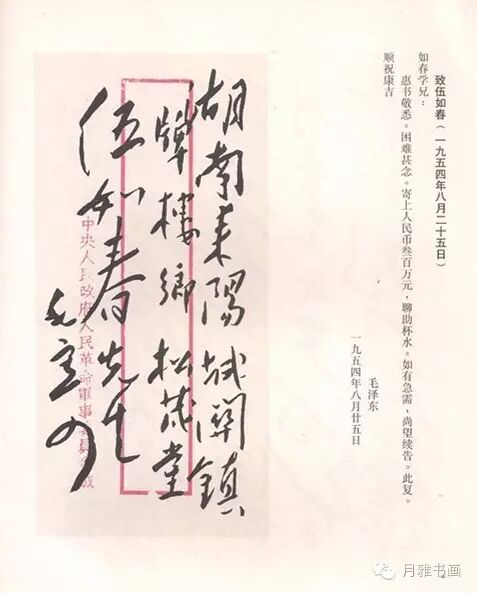 致伍如春（一九五四年八月二十五日）
如春学兄：
惠书敬悉。困难甚念。寄上人民币叁百万元，聊助杯水。如有急需，尚望续告。此复。
顺祝康吉
毛泽东
一九五四年八月廿五日
湖南耒陽城關鎮
牌樓鄉松茂堂
伍如春先生
毛主席
中央人民政府人民革命軍事委員會緘
月雅书画